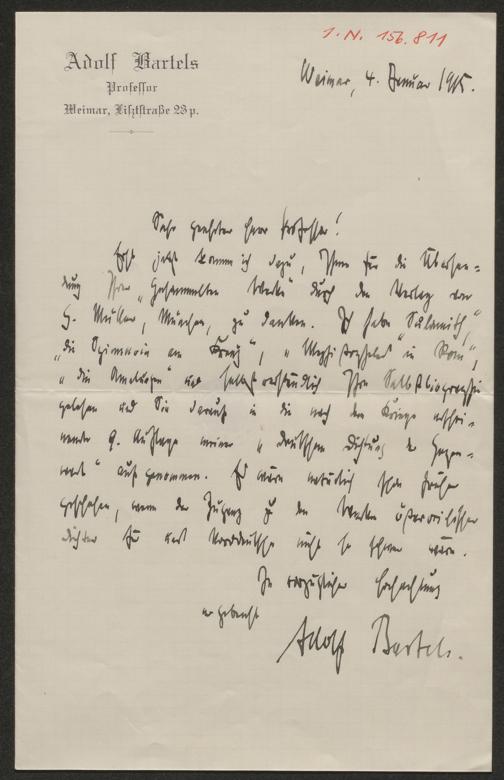 I.N. 156.811
Adolf Bartels
Professor
Weimar, Lisztstraße 23 p.
Weimar, 4. Januar 1915.
Sehr geehrter Herr Professor!
Erst jetzt komme ich dazu, Ihnen für die Übersen-
dung Ihrer „Gesammelten Werke" durch den Verlag von
G. Müller, München, zu danken. Ich habe „Sulamith",
„die Spinnerin am Kreuz", „Mephistopheles in Rom",
„die" und selbstverständlich Ihre Selbstbiographie
gelesen und Sie darauf in die nach dem Kriege erschei-
nende 9. Auflage meiner „deutschen Dichtung der Gegen-
wart" aufgenommen. Es wäre natürlich schon früher
geschehen, wenn der Zugang zu den Werken österreichischer
Dichter für uns Norddeutsche nicht so schwer wäre.
In vorzüglicher Hochachtung
ergebenst
Adolf Bartels.